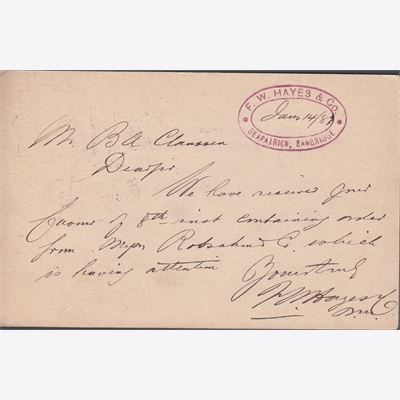 F. W. HAYES & Co.
Jany 14/87
SEAPATRICK, BANBRIDGE
Mr B A Claussen
Dearsir
We have received your
favour of 8th inst containing order
from Messrs & Co. which
is having attention
Yours truly
F W Hayes & Co